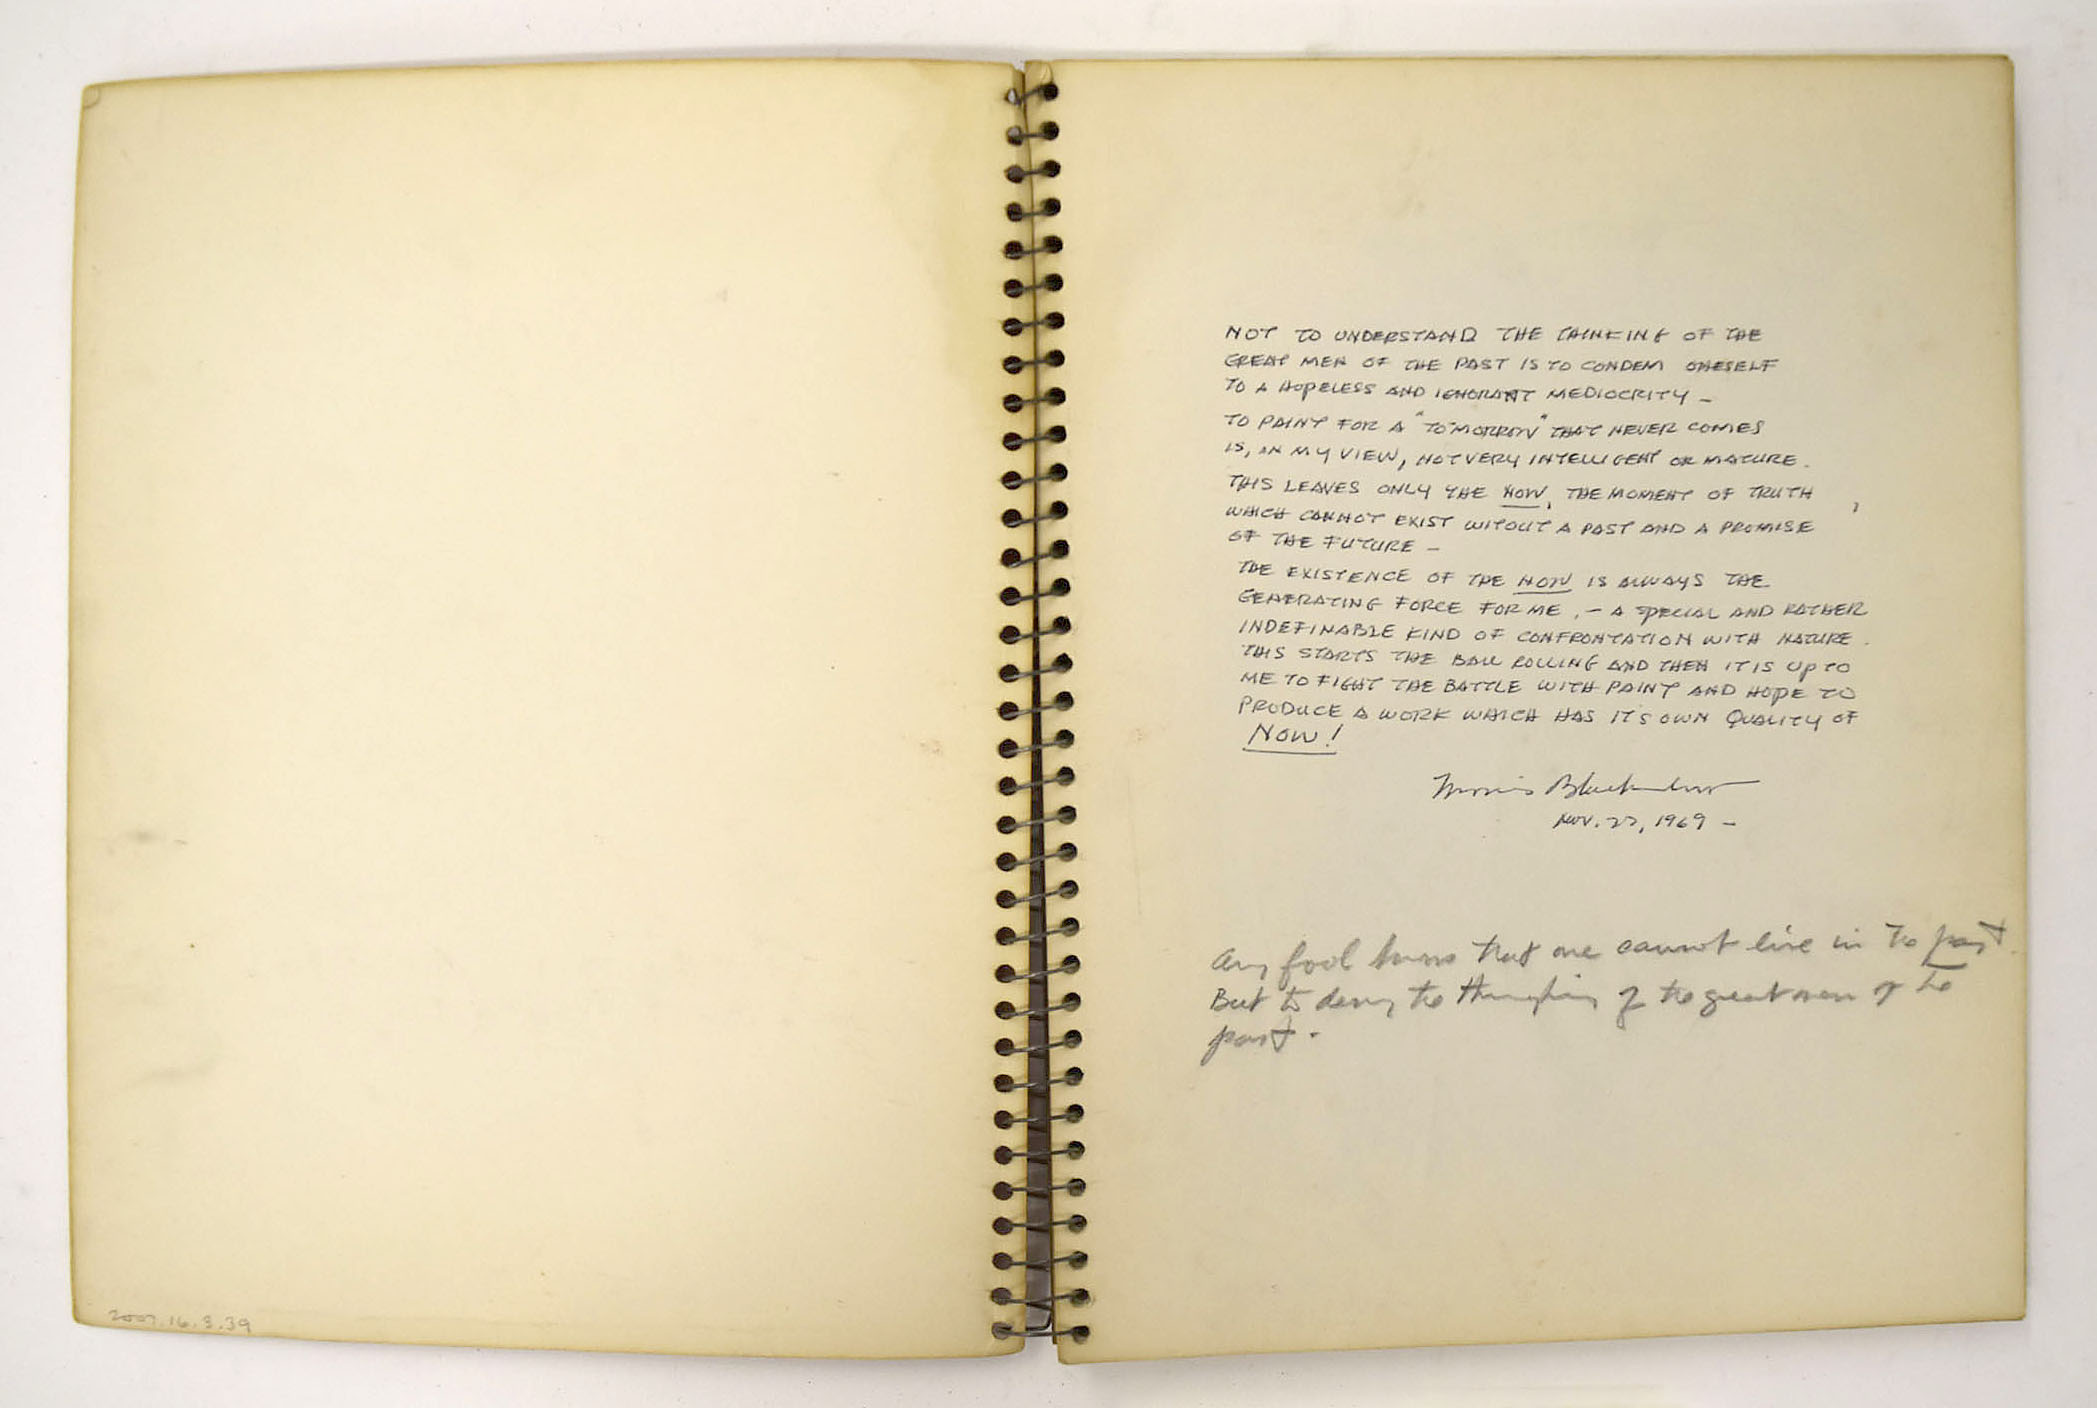 NOT TO UNDERSTAND THE THINKING OF THE
GREAT MEN OF THE PAST IS TO CONDEM ONESELF
TO A HOPELESS AND IGNORANT MEDIOCRITY –
TO PAINT FOR A "TOMORROW" THAT NEVER COMES
IS, IN MY VIEW, NOT VERY INTELLIGENT OR MATURE.
THIS LEAVES ONLY THE NOW, THE MOMENT OF TRUTH,
WHICH CANNOT EXIST WITOUT A PAST AND A PROMISE
OF THE FUTURE –
THE EXISTENCE OF THE NOW IS ALWAYS THE
GENERATING FORCE FOR ME. – A SPECIAL AND RATHER
INDEFINABLE KIND OF CONFRONTATION WITH NATURE.
THIS STARTS THE BALL ROLLING AND THEN IT IS UP TO
ME TO FIGHT THE BATTLE WITH PAINT AND HOPE TO
PRODUCE A WORK WHICH HAS IT'S OWN QUALITY OF
NOW!
Morris Blackburn
Nov. 22, 1969 –
Any fool knows that one cannot live in the past.
But to deny the of the great men of the
past.
2007.16.3.39